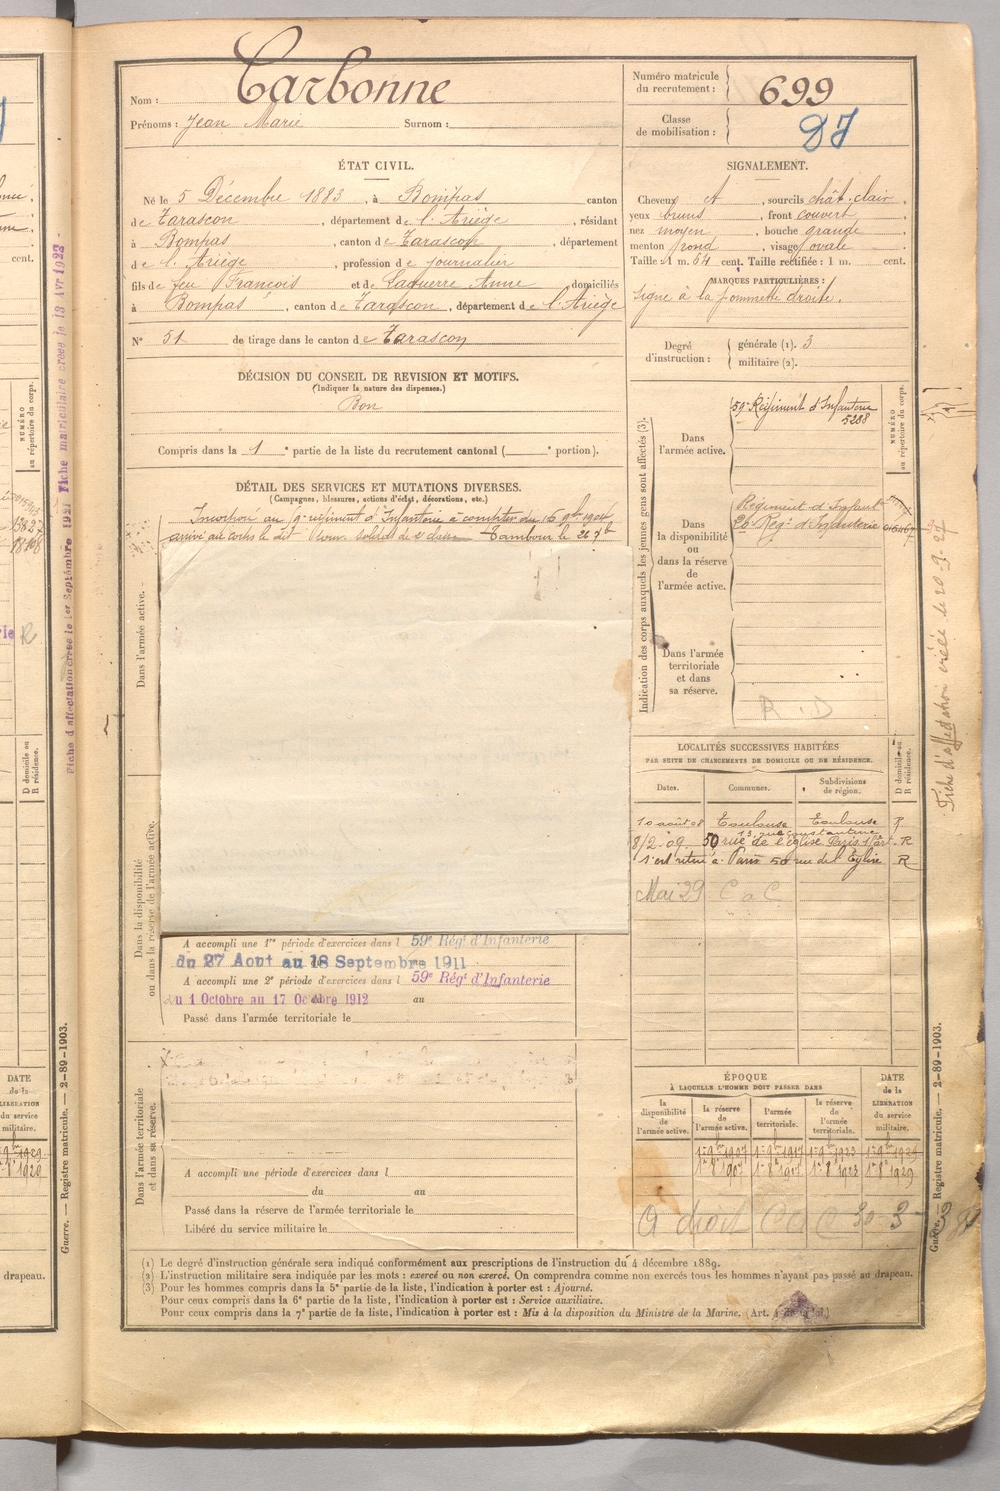 Nom : Carbonne
Prénoms : Jean Marie Surnom :
Numéro matricule du recrutement : 699
Classe de mobilisation :
ÉTAT CIVIL.
Né le 5 Décembre 1883, à Bompas canton
de Tarascon, département de l'Ariège, résidant
à Bompas, canton de Tarascon, département
de l'Ariège, profession de journalier
fils de feu François et de Laguerre Anne, domiciliés
à Bompas, canton de Tarascon, département de l'Ariège
N° 51 de tirage dans le canton de Tarascon
SIGNALEMENT.
Cheveux et, sourcils chât. clair,
yeux bruns, front couvert,
nez moyen, bouche grande,
menton rond, visage ovale
Taille : 1 m. 64 cent. Taille rectifiée : 1 m. cent.
MARQUES PARTICULIÈRES :
Signe à la pommette droite.
Degré d'instruction : générale (1). 3
militaire (2).
DÉCISION DU CONSEIL DE REVISION ET MOTIFS.
(Indiquer la nature des dispenses.)
Bon
Compris dans la 1e partie de la liste du recrutement cantonal (e portion).
DÉTAIL DES SERVICES ET MUTATIONS DIVERSES.
(Campagnes, blessures, actions d'éclat, décorations, etc.)
Incorporé au régiment d'Infanterie à compter du 16 9bre 1904
arrivé au corps le dit jour, soldat de 2e classe Tambour le 26
Dans l'armée active.
Dans la disponibilité ou dans la réserve de l'armée active.
A accompli une 1re période d'exercices dans l 59e Régt d'Infanterie
du 27 Aout au 18 Septembre 1911
A accompli une 2e période d'exercices dans l 59e Régt d'Infanterie
du 1 Octobre au 17 Octobre 1912 au
Passé dans l'armée territoriale le
Dans l'armée territoriale et dans sa réserve.
A accompli une période d'exercices dans l
du au
Passé dans la réserve de l'armée territoriale le
Libéré du service militaire le
Indication des corps auxquels les jeunes gens sont affectés (3).
NUMÉRO au répertoire du corps.
Dans l'armée active.
59e Régiment d'Infanterie
5268
Dans la disponibilité ou dans la réserve de l'armée active.
Régiment d'Infant
Régt d'Infanterie
Dans l'armée territoriale et dans sa réserve.
R . D
LOCALITÉS SUCCESSIVES HABITÉES
PAR SUITE DE CHANGEMENTS DE DOMICILE OU DE RÉSIDENCE.
D domicile ou R résidence.
Dates. Communes. Subdivisions de région.
10 août 08 Toulouse Toulouse R
13, rue Constantine
8/2 09 50 rue de l'église Paris 15e art. R
s'est retiré à Paris 50 rue de l'Église R
Mai 29 C a C
ÉPOQUE
À LAQUELLE L'HOMME DOIT PASSER DANS
DATE de la LIBÉRATION du service militaire.
la disponibilité de l'armée active.
la réserve de l'armée active.
l'armée territoriale.
la réserve de l'armée territoriale.
A droit C a C 30-3
(1) Le degré d'instruction générale sera indiqué conformément aux prescriptions de l'instruction du 4 décembre 1889.
(2) L'instruction militaire sera indiquée par les mots : exercé ou non exercé. On comprendra comme non exercés tous les hommes n'ayant pas passé au drapeau.
(3) Pour les hommes compris dans la 5e partie de la liste, l'indication à porter est : Ajourné.
Pour ceux compris dans la 6e partie de la liste, l'indication à porter est : Service auxiliaire.
Pour ceux compris dans la 7e partie de la liste, l'indication à porter est : Mis à la disposition du Ministre de la Marine. (Art. 4 de la loi.)
Guerre. — Registre matricule. — 2-89-1903.
Fiche d'affectation créée le 20-9-27
Fiche d'affectation créée le 1er Septembre 1927 Fiche matriculaire créée le 13 Avr 1923
NUMÉRO au répertoire du corps.
cent.
D domicile ou R résidence.
DATE de la LIBÉRATION du service militaire.
Guerre. — Registre matricule. — 2-89-1903.
drapeau.